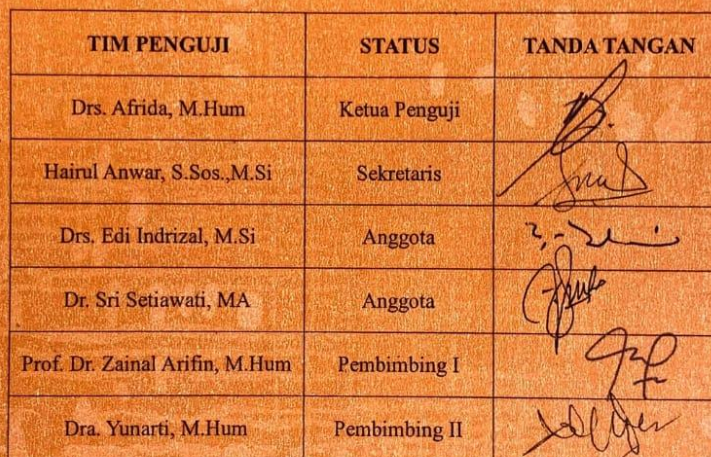 TIM PENGUJI STATUS TANDA TANGAN
Drs. Afrida, M.Hum Ketua Penguji
Hairul Anwar, S.Sos.,M.Si Sekretaris
Drs. Edi Indrizal, M.Si Anggota
Dr. Sri Setiawati, MA Anggota
Prof. Dr. Zainal Arifin, M.Hum Pembimbing I
Dra. Yunarti, M.Hum Pembimbing II